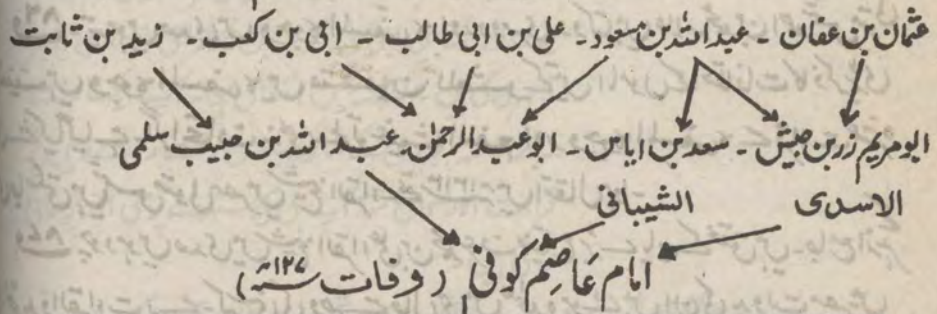 عثمان بن عفان ـ عبداللہ بن مسعود ـ علی بن ابی طالب ـ ابی بن کعب ـ زید بن ثابت
ابو مریم زر بن حبیش ـ سعد بن ایاس ـ ابو عبدالرحمٰن عبداللہ بن حبیب سلمی
الاسدی الشیبانی
امام عَاصِم کوفی (وفات ۱۲۷ھ)